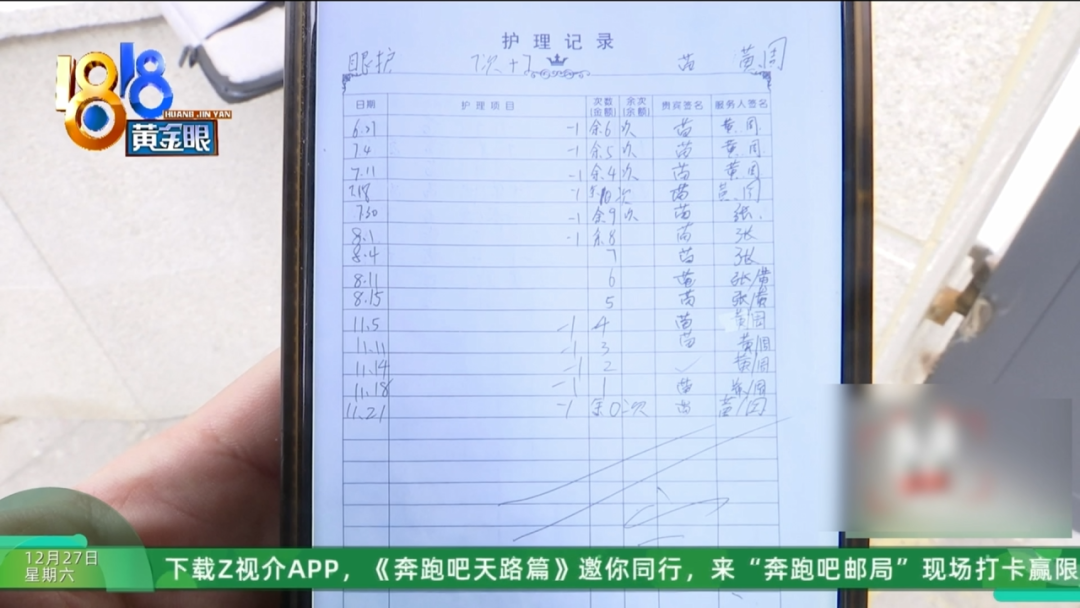 护理记录
眼护 7次+7 苗 黄周
1818
HUANG JIN YAN
黄金眼
日期 护理项目 次数(金额) 余次(金额) 贵宾签名 服务人签名
6.27 -1 余6次 苗 黄.周
7.4 -1 余5次 苗 黄.周
7.11 -1 余4次 苗 黄.周
7.18 -1 余10次 苗 黄.周
7.30 -1 余9次 苗 张.
8.1 -1 余8 苗 张
8.4 7 苗 张
8.11 6 苗 张/黄
8.15 5 苗 张/黄
11.5 -1 4 苗 黄周
11.11 -1 3 苗 黄/周
11.14 -1 2 黄/周
11.18 -1 1 苗 /周
11.21 -1 余0次 苗 黄/周
12月27日
星期六
下载Z视介APP，《奔跑吧天路篇》邀你同行，来“奔跑吧邮局”现场打卡赢限